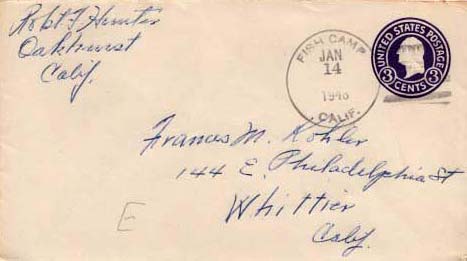 Robt T Hunter
Oakhurst
Calif.
FISH CAMP
JAN
14
1948
CALIF.
UNITED STATES POSTAGE
3 CENTS 3
Frances M. Kohler
144 E. Philadelphia St
Whittier
Calif.
E